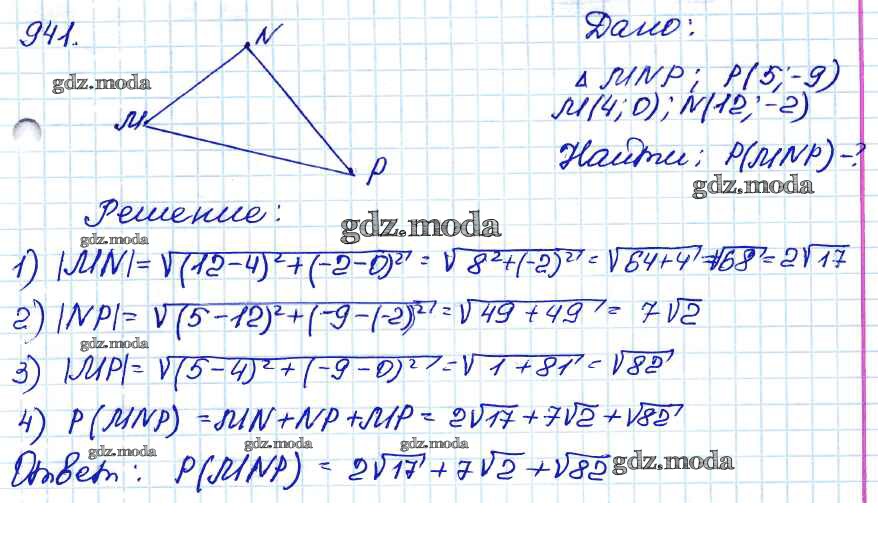 941.
N
Дано:
gdz.moda
△ MNP; P(5;-9)
M
M(4;0); N(12;-2)
P
Найти; P(MNP)-?
gdz.moda
Решение:
gdz.moda
gdz.moda
1) |MN| = √((12-4)²+(-2-0)²) = √(8²+(-2)²) = √(64+4) = √68 = 2√17
2) |NP| = √((5-12)²+(-9-(-2))²) = √(49+49) = 7√2
gdz.moda
3) |MP| = √((5-4)²+(-9-0)²) = √(1+81) = √82
4) P(MNP) = MN+NP+MP = 2√17+7√2+√82
gdz.moda gdz.moda gdz.moda
Ответ: P(MNP) = 2√17+7√2+√82
gdz.moda